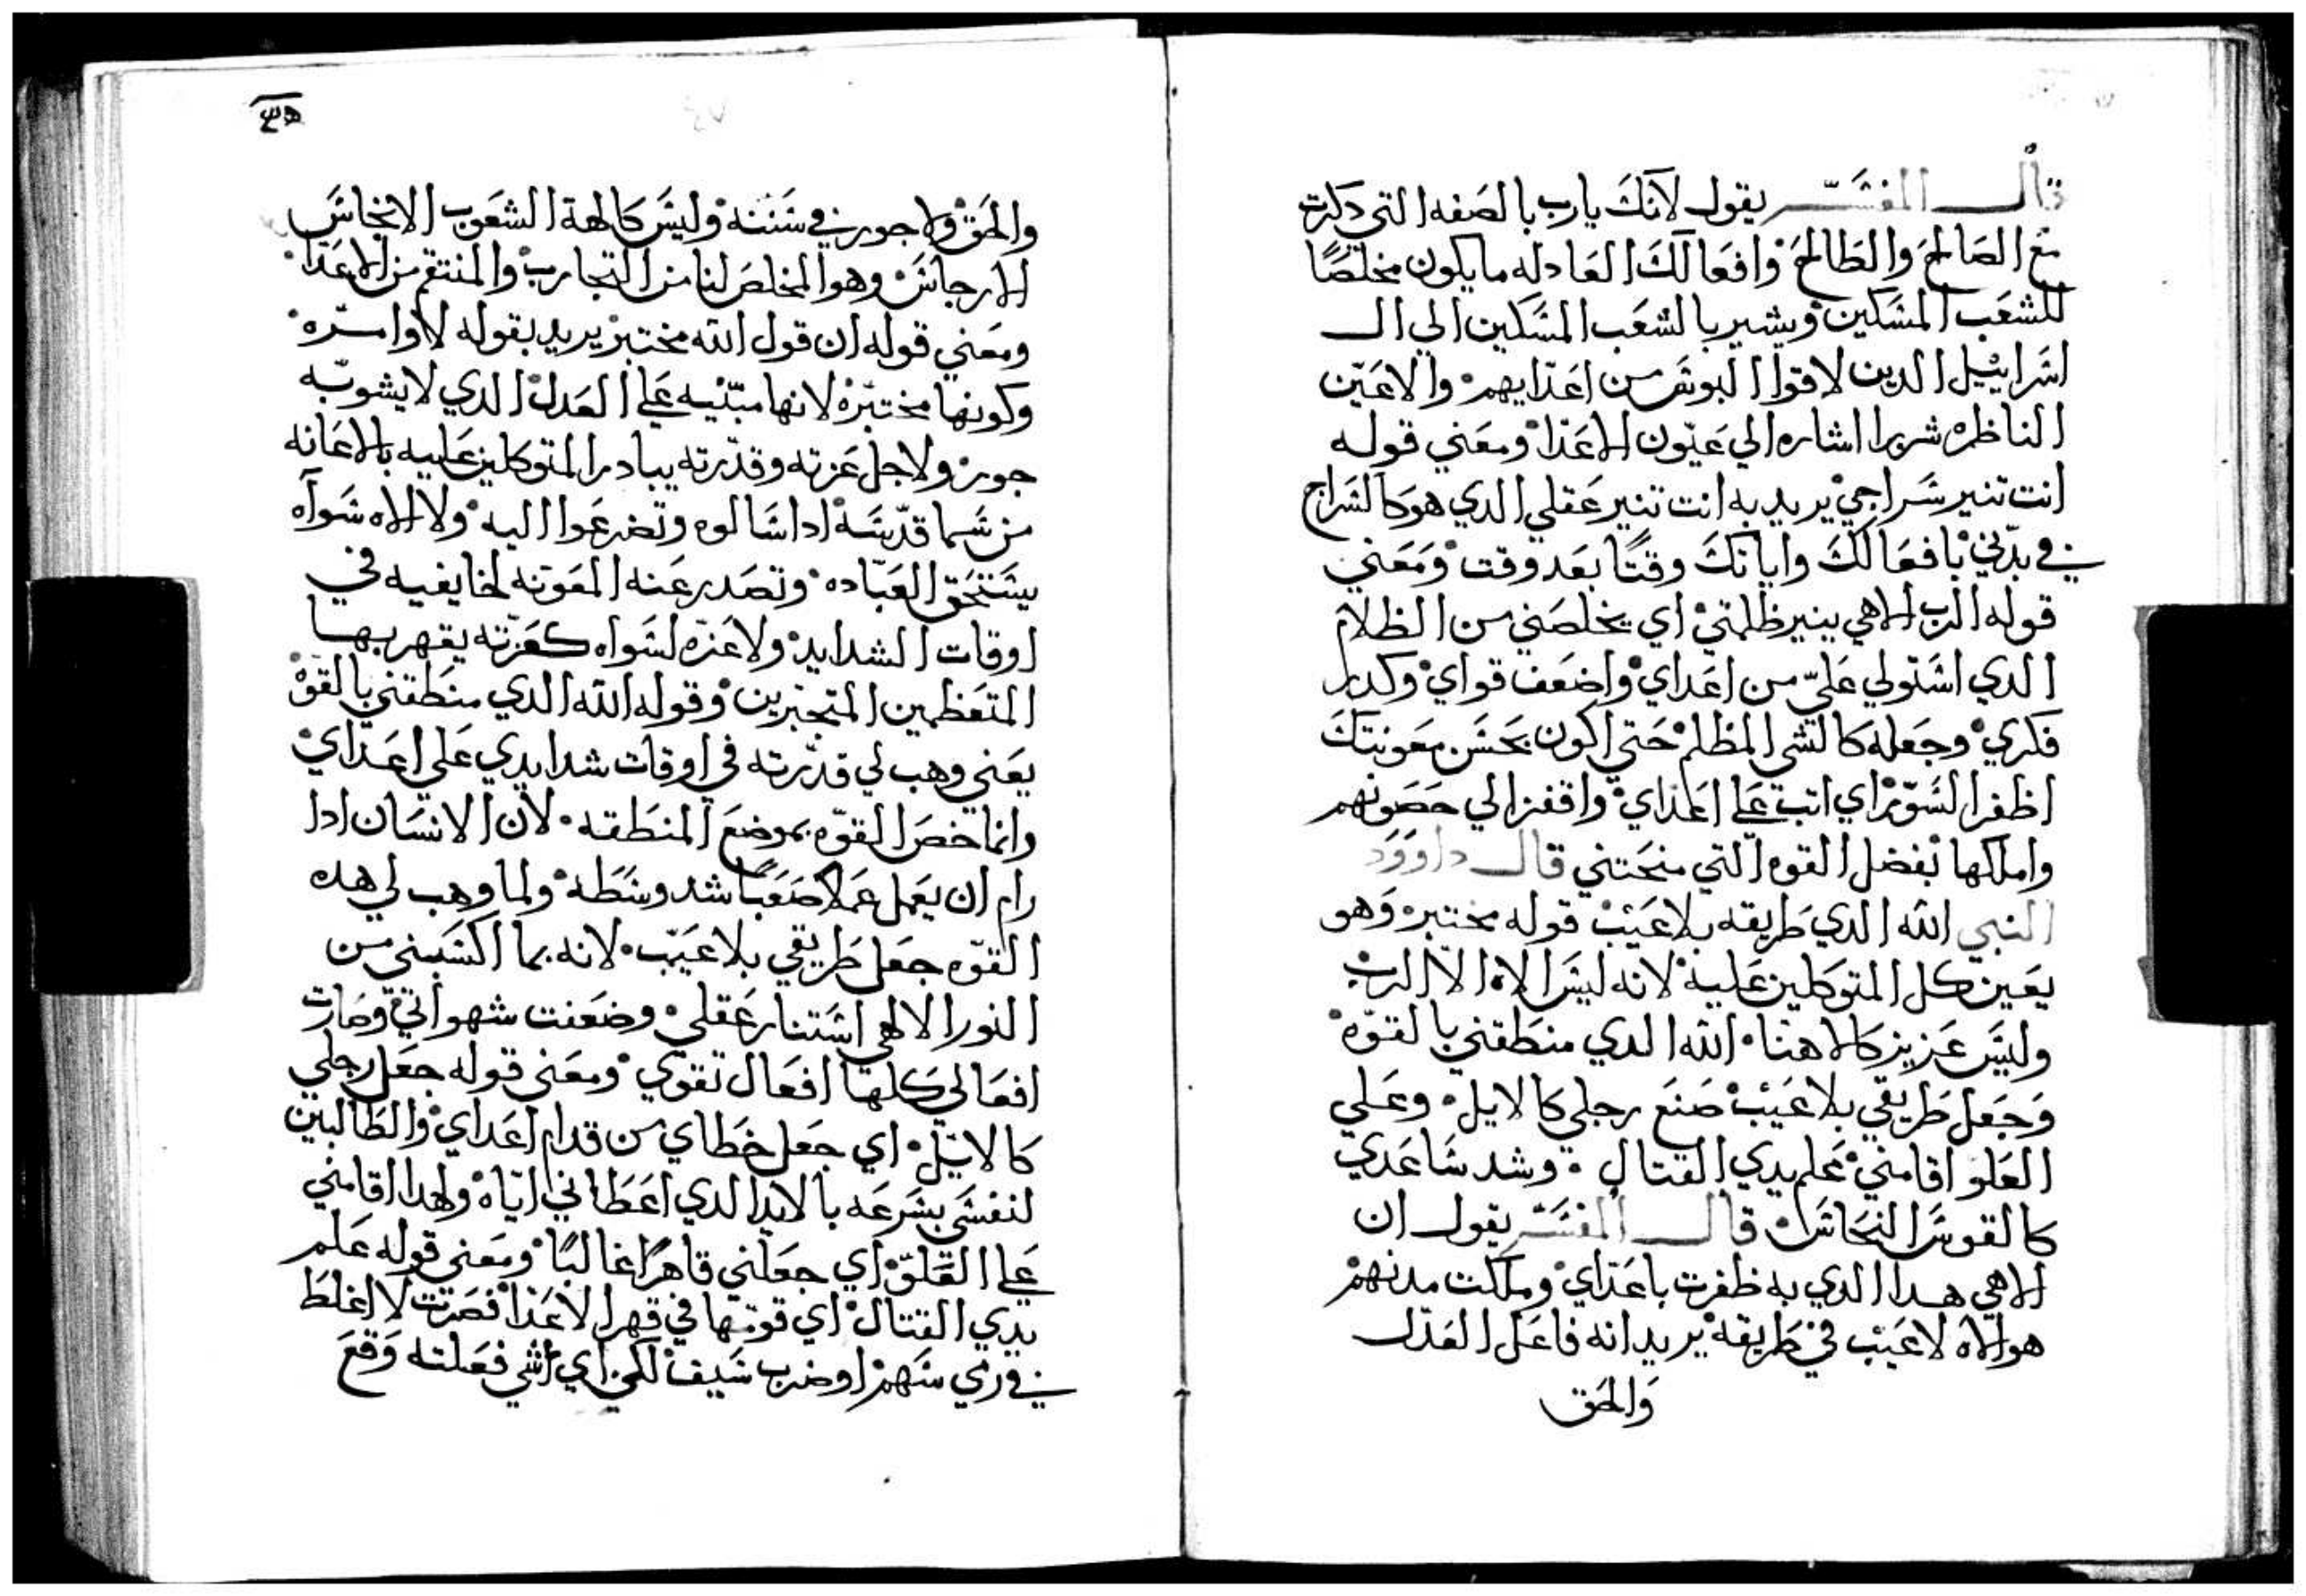 قال المفسّر يقول لانك يارب بالصفه التي دكرت
مع الصالح والطالح وافعالك العادله مايكون مخلصًا
للشعب المسكين ويشير بالشعب المسكين الي ال
اسراييل الدين لاقوا البوس من اعدايهم والاعين
الناظره شررا اشاره الي عيون الاعدا ومعني قوله
انت تنير سراجي يريد به انت تنير عقلي الدي هو كالسراج
في بدني بافعالك واياتك وقتًا بعد وقت ومعني
قوله الرب الاهي ينير ظلمتي اي يخلصني من الظلام
الدي استولي عليّ من اعداي واضعف قواي وكدر
فكري وجعله كالشي المظلم حتي اكون بحسن معونتك
اظفر السور اي اتب علي اعداي واقفز الي حصونهم
واملكها بفضل القوه التي منحتني قال داوود
النبي الله الدي طريقه بلاعيب قوله مختبر وهو
يعين كل المتوكلين عليه لانه ليس الاه الا الرب
وليس عزيز كالاهنا الله الدي منطقني بالقوّه
وجعل طريقي بلاعيب صنع رجلي كالايل وعلي
العلو اقامني علم يدي القتال وشد ساعدي
كالقوس النحاس قال المفسّر يقول ان
الاهي هدا الدي به ظفرت باعداي وملكت مدنهم
هو الاه لاعيب في طريقه يريد انه فاعل العدل
والحق
والحق ولا جور في سننه وليس كالهة الشعوب الانجاس
الارجاس وهو المخلص لنا من التجارب والمنتقم من الاعدا
ومعني قوله ان قول الله مختبر يريد بقوله لاوامره
وكونها مختبره لانها مبنيه علي العدل الدي لايشوبه
جور ولاجل عزته وقدرته يبادر المتوكلين عليه بالاعانه
من سما قدسه ادا سالوه وتضرعوا اليه ولا الاه سواه
يستحق العباده وتصدر عنه المعونه لخايفيه في
اوقات الشدايد ولا عزه لسواه كعزته يقهر بها
المتعظمين المتجبرين وقوله الله الدي منطقني بالقوّه
يعني وهب لي قدرته في اوقات شدايدي علي اعداي
وانما خص القوّه بموضع المنطقه لان الانسان ادا
رام ان يعمل عملا صعبًا شد وسطه ولما وهب لي هده
القوّه جعل طريقي بلاعيب لانه بما اكسبني من
النور الالهي استنار عقلي وضعفت شهواتي وصارت
افعالي كلها افعال تقوي ومعني قوله جعل رجلي
كالايل اي جعل خطاي من قدام اعداي والطالبين
لنفسي بسرعه بالايد الدي اعطاني اياه ولهدا اقامني
علي العلو اي جعلني قاهرًا غالبًا ومعني قوله علم
يدي القتال اي قوتها في قهر الاعدا فصرت لا اغلط
في رمي سهم او ضرب سيف لكن اي شي فعلته وقع